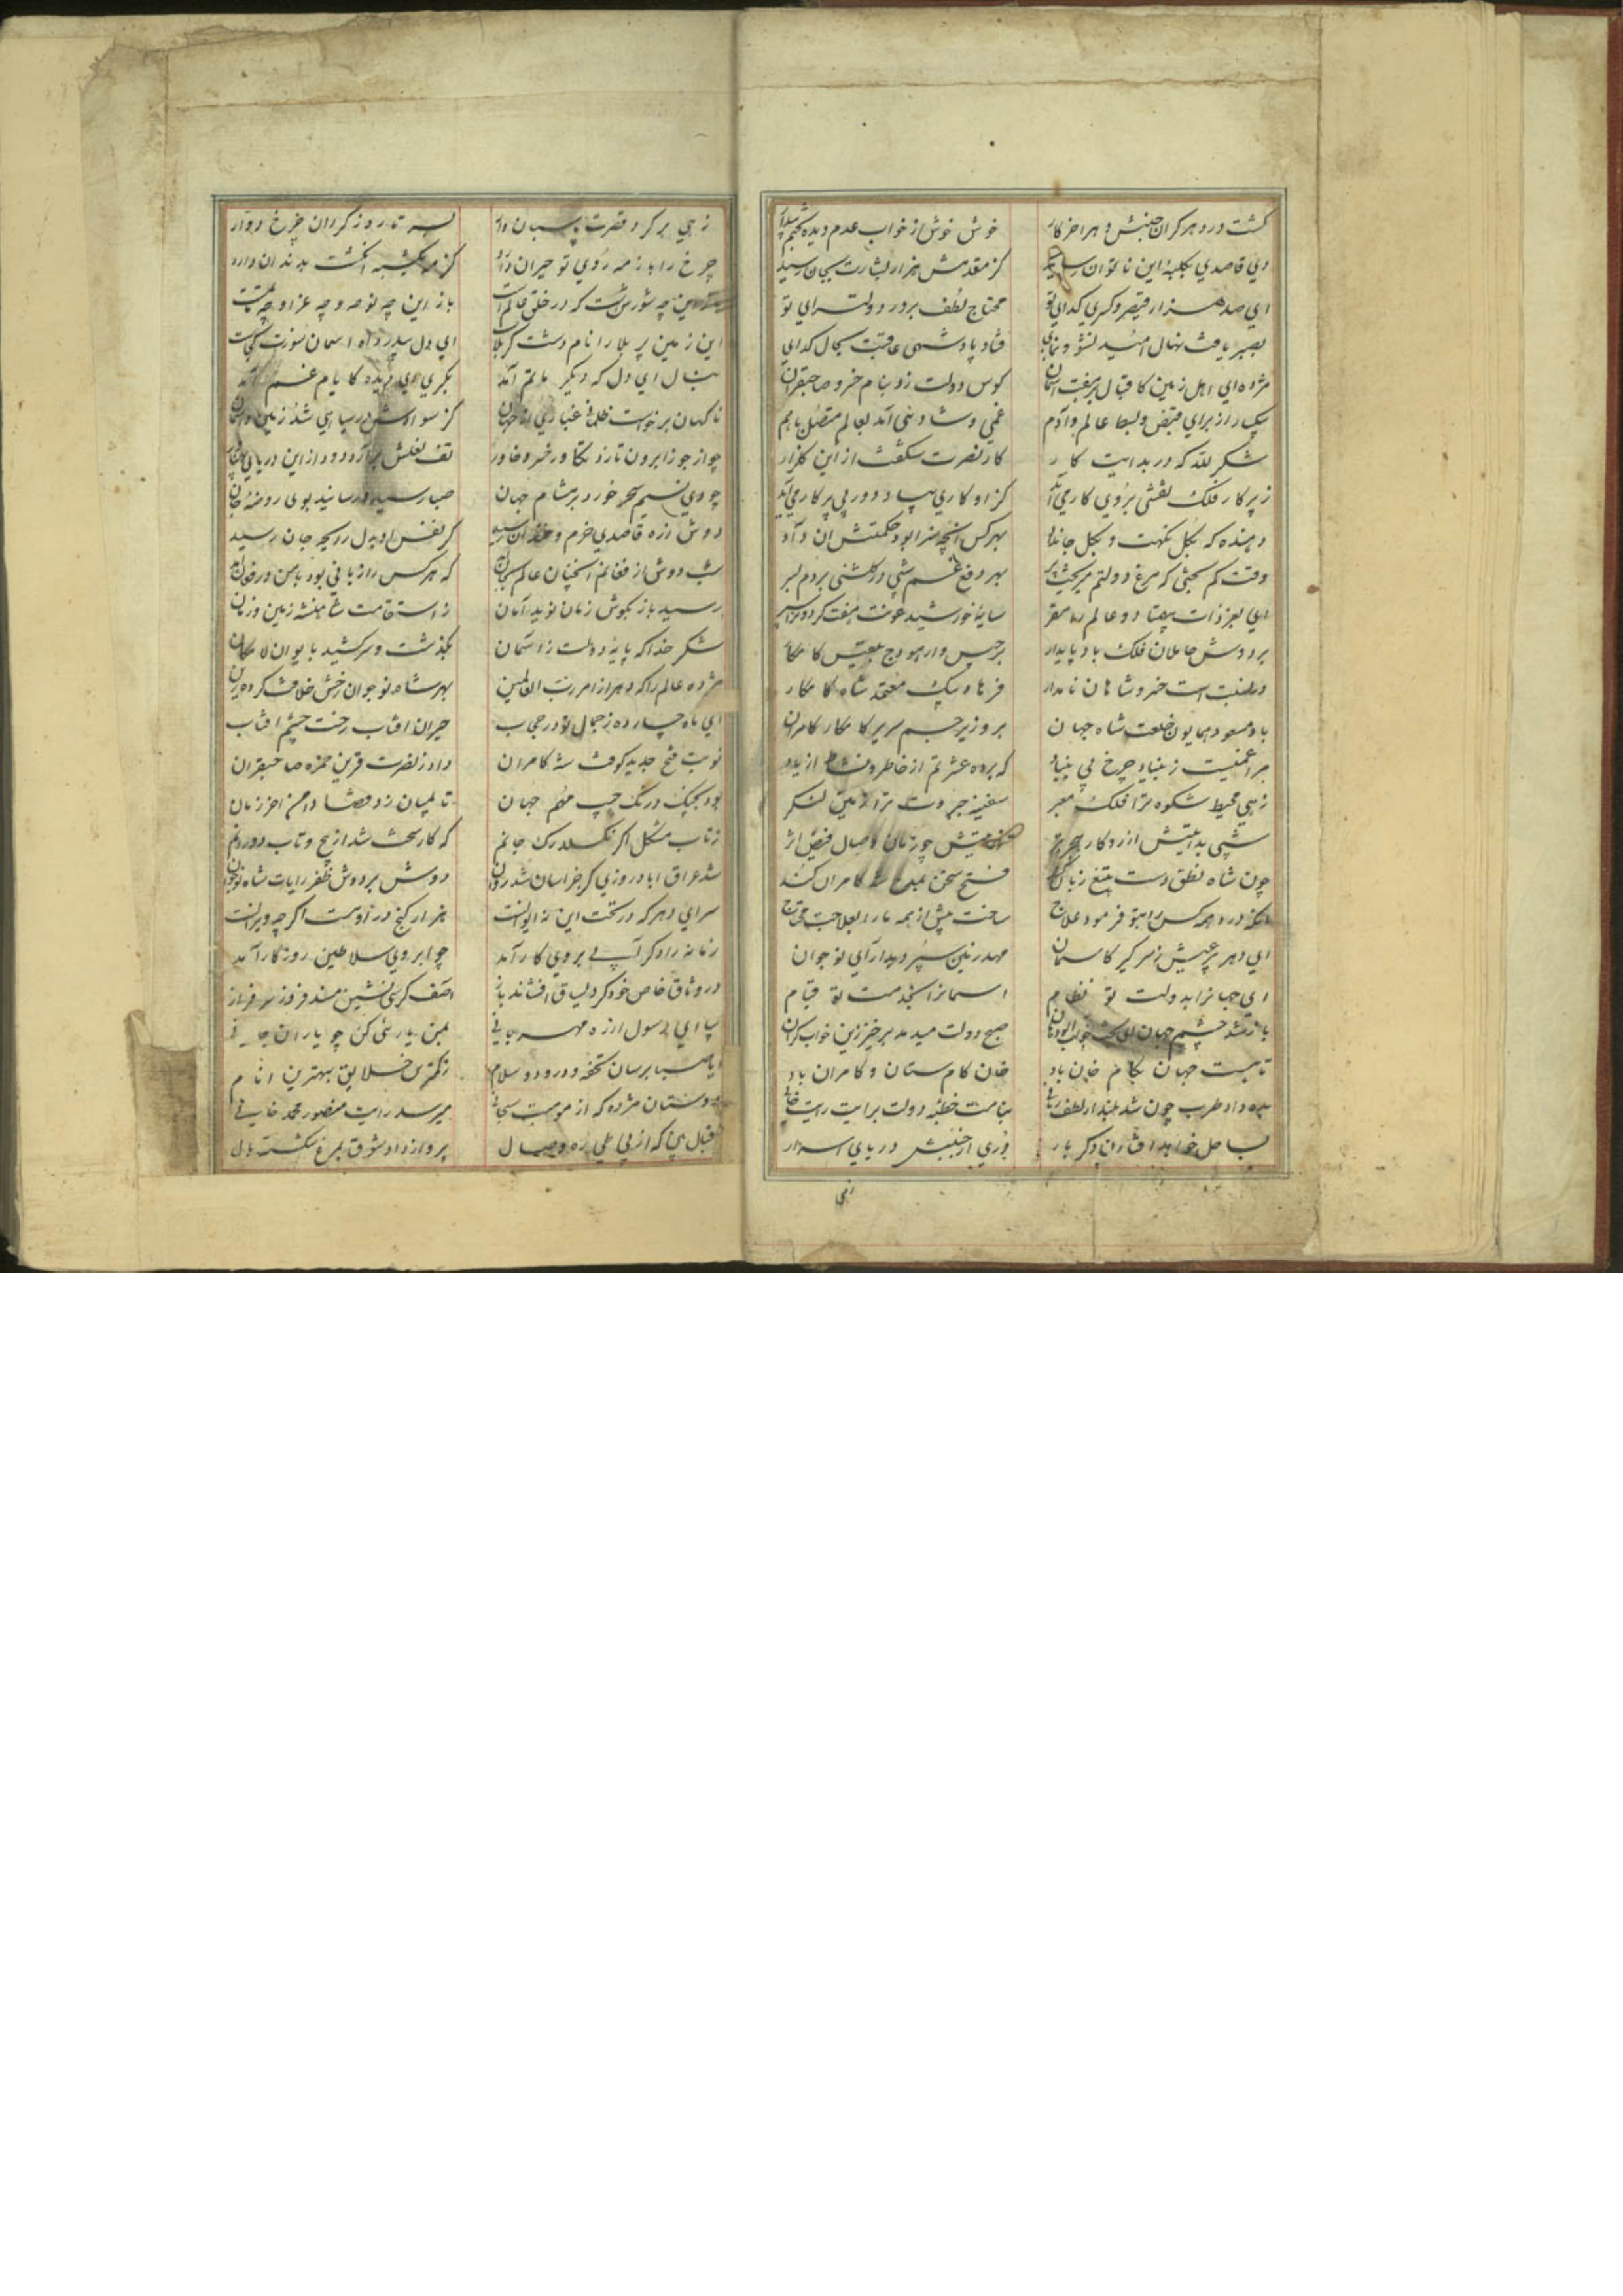 گشت در دهر گران جنبش و هر اخر کار خوش خوش از خواب عدم دیده
دی قاصدی بکلبهٔ این ناتوان رسید کز مقدمش هزار بشارت بجان رسید
ای صد هزار قیصر و کسری گدای تو محتاج لطف بر در دولت سرای تو
بصیر یافت نهال امید نشو و نمای فتاد پادشهی عاقبت بحال گدای
مژده ای اهل زمین کاقبال بر هفت اسمان کوس دولت زد بنام خسرو صاحبقران
یک راز برای قبض و بسط عالم و آدم غمی و شادئی آمد بعالم متصل باهم
شکر لله که در بدایت کار کار نصرت شکفت از این گلزار
ز پرکار فلک نقشی بروی کار می آید کز او کاری بپا در دور بی پرکار می آید
دهنده که بگل نکهت و بگل جان داد بهر کس انچه سزا بود حکمتش ان داد
وقت کم بختی که مرغ دولتم میریخت پر بهر دفع غم شبی در گلشنی بردم بسر
ای بعز ذات هفتاد و دو عالم را مقر سایهٔ خورشید عونت
بر دوش حاملان فلک باد پایدار برجیس وار هودج بلقیس کامکار
خسرو شاهان نامدار فرهاد بیک معتمد شاه کامکار
باد مسعود همایون خلعت شاه جهان بر وزیر جم سریر کامکار کامران
مرا غمیست ز بنیاد چرخ بی بنیاد که برده عشرتم از خاطر و نشاط از یاد
زهی محیط شکوه ترا فلک معبر سفینهٔ جبروت ترا زمین لنگر
شهی بدایتش از روکار
چون شاه نطق دست بتیغ زبان کند فتح سخن بمدح شه کامران کند
درد همه کس را بتو فرمود علاج ساخت پیش از همه ما را بعلاجت محتاج
ای دهر پیر عیش ز سر گیر کاسمان مهد زمین سپرد بدارای نوجوان
ای جهانرا بدولت تو نظام اسمانرا بخدمت تو قیام
باز شد چشم جهان صبح دولت میدمد برخیز زین خواب گران
تا هست جهان بکام خان باد خان کام ستان و کامران باد
مژده داد طرب چون شد بلند از لطف ربانی بنامت خطبهٔ دولت برایت رایت خانی
بساحل خواهد افتادن دگر بار دری از جنبش دریای اسرار
زهی
زهی بر گرد قصرت پاسبان وار بسر تا روز گردان چرخ دوار
چرخ را باز مه روی تو حیران دارد کز انگشت بدندان دارد
باز این چه شورش است که در خلق عالم است باز این چه نوحه و چه عزا و چه ماتم است
این زمین پر بلا را نام دشت کربلاست ای دل بیدرد آه اسمان سوزت کجاست
بنال ای دل که دیگر ماتم آمد بگری ای دیده کایام غم آمد
ناگهان برخواست ظلمانی غباری از جهان کز سوادش در سیاهی شد زمین و اسمان
چو از جوزا برون تازد تکاور خسرو خاور تف نعلش برآرد دود از این دریای
چو وی نسیم سحر خورد بر مشام جهان صبا رسید و رسانید بوی روضهٔ جان
دوش از ره قاصدی خرم و خندان رسید کز نفس او بدل رایحهٔ جان رسید
شب دوش از فغانم انچنان عالم بجان آمد که هر کس را زبانی بود با من در فغان آمد
رسید باز بگوش زمان نوید امان ز استقامت شاهنشه زمین و زمان
شکر خدا که پایهٔ دولت ز اسمان بگذشت و سر کشید بایوان لامکان
مژده عالم را که دهر از امر رب العالمین بهر شاه نوجوان رخش خلافت کرد زین
ای ماه چارده ز جمال تو در حجاب حیران افتاب رخت چشم افتاب
نوبت فتح جدید کوفت شه کامران داد ز نصرت قرین حمزه صاحبقران
بود بچنگ درنگ چپ مهم جهان تا بمیان زد قضا دامن اخر زمان
ز تاب مشکل اگر نگسلد رگ جانم که کار سخت شد از پیچ و تاب دورانم
شد عراق اباد روزی کز خراسان شد روان دوش بر دوش ظفر رایات شاه نوجوان
سرای دهر که در تحت این نه ایوانست هزار گنج در اوست اگر چه ویرانست
زمانه را دگر آب بروی کار آمد چو ابروی سلاطین روزگار آمد
در وثاق خاص خود گرد لباق افشاند باز اصف کرسی نشین مسند فروز سرفراز
بیا ای رسول از ره مهربانی بمن یارئی کن چو یاران جانی
یا صبا برسان تحفهٔ درود و سلام ز کمترین خلایق بهترین انام
دوستان مژده که از موهبت سبحانی میرسد رایت منصور محمد خانی
اقبال بین که از پی طی ره وصال پرواز داد شوق بمرغ شکسته بال